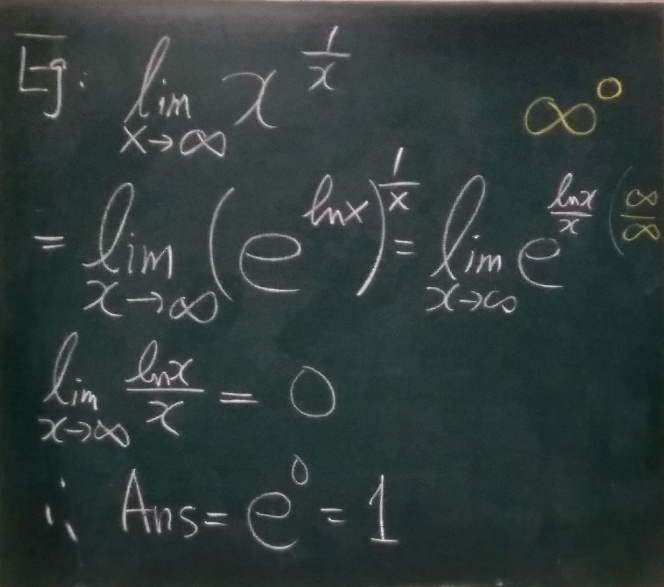 Eg: lim x→∞ x^(1/x) ∞^0
= lim x→∞ (e^(lnx))^(1/x) = lim x→∞ e^(lnx/x) (∞/∞
lim x→∞ lnx/x = 0
∴ Ans = e^0 = 1